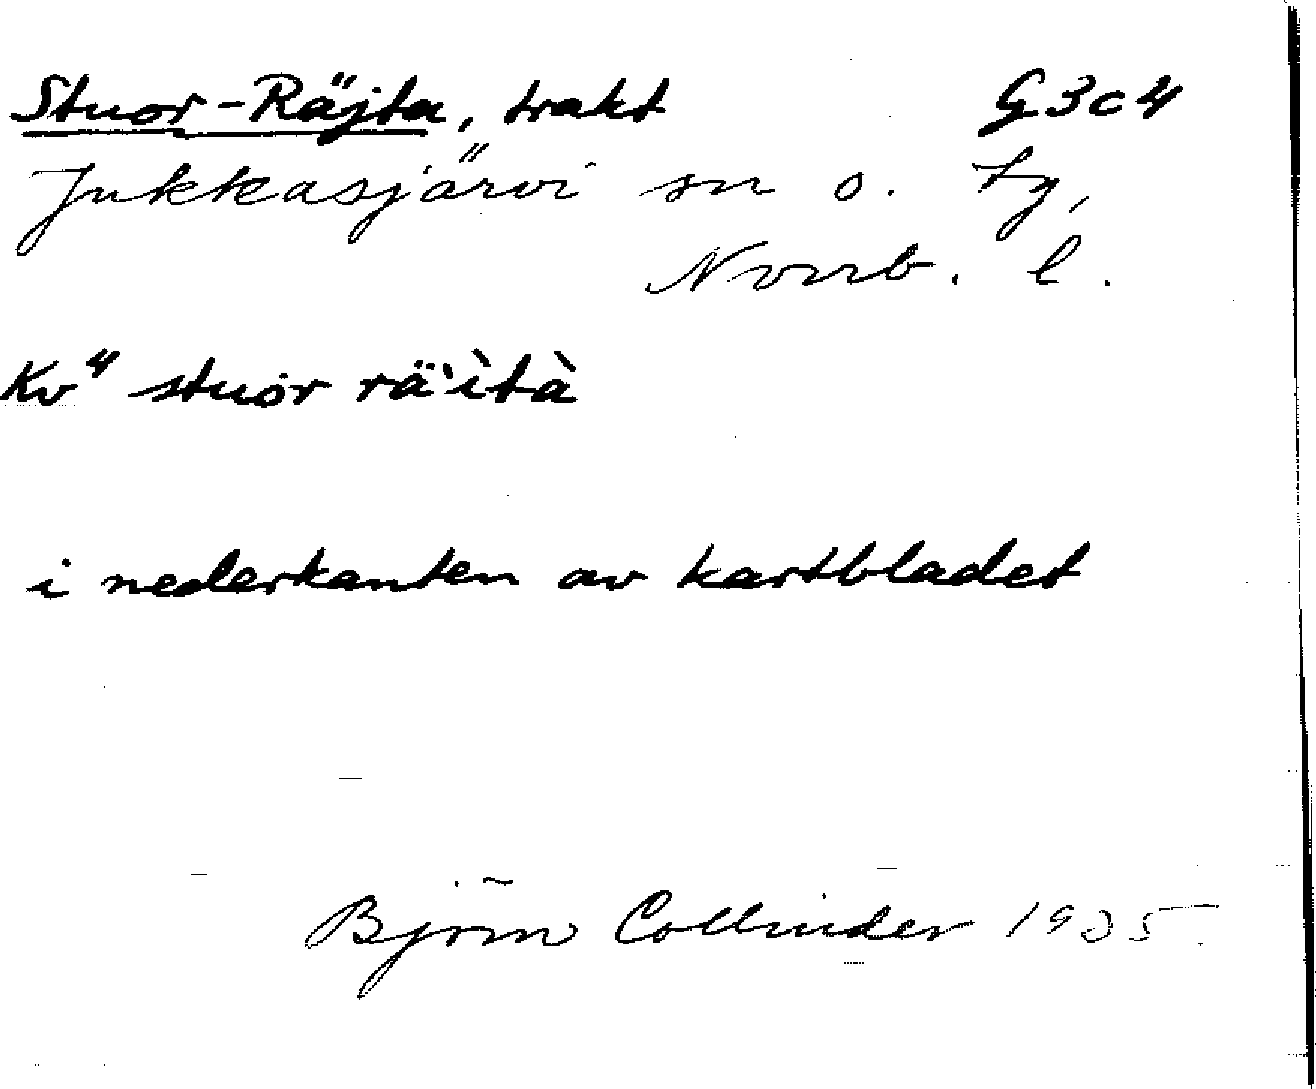 Stuor-Räjta, trakt G3c4
Jukkasjärvi sn o. tg,
Norrb. l.
Kv⁴ stuor rä`ìtà
i nederkanten av kartbladet
Björn Collinder 1935.